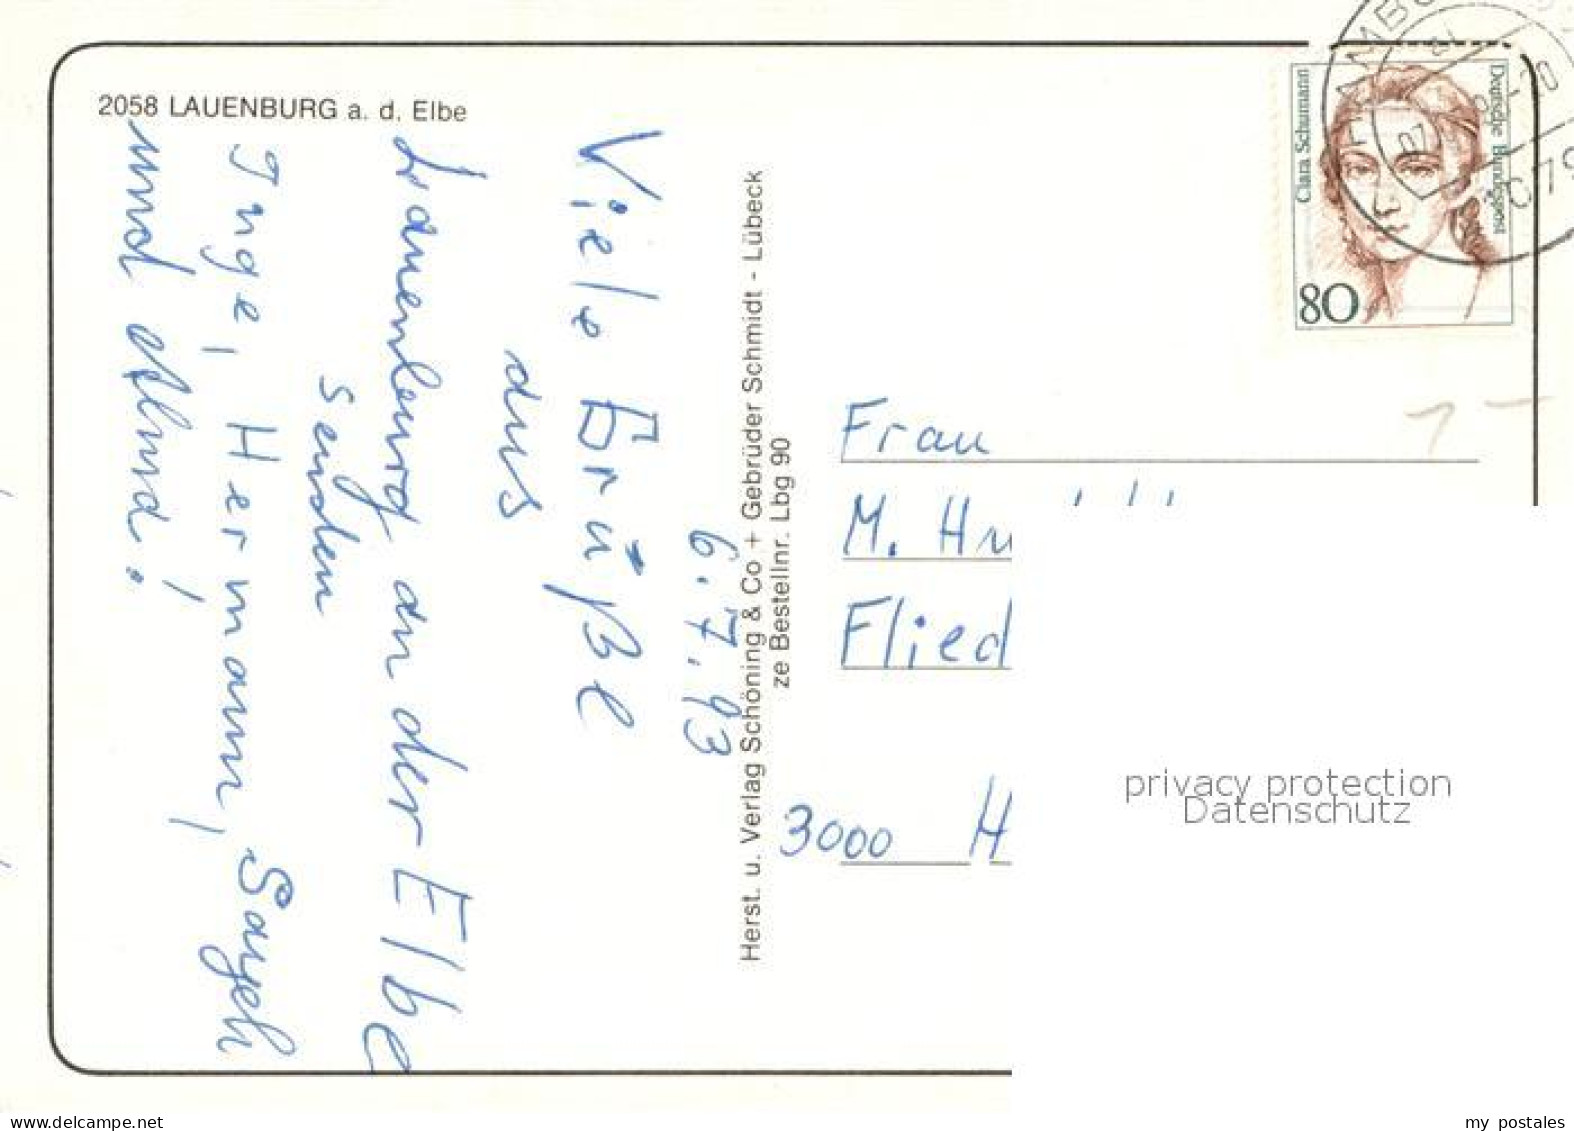 2058 LAUENBURG a. d. Elbe
6.7.93
Viele Grüße
aus
Lauenburg an der Elbe
senden
Inge, Hermann,
und Alma!
Herst. u. Verlag Schöning & Co + Gebrüder Schmidt - Lübeck
ze Bestellnr. Lbg 90
Clara Schumann
Deutsche Bundespost
80
Frau
M. Hu
Flied
3000 H
privacy protection
Datenschutz
www.delcampe.net
my_postales